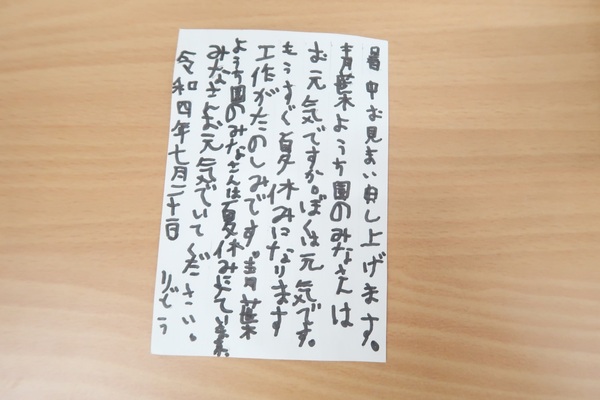 暑中お見まい申し上げます。
青葉ようち園のみなさんは
お元気ですか。ぼくは元気です。
もうすぐ夏休みになります
工作がたのしみです。青葉
ようち園のみなさんは夏休み
みなさんお元気でいてください。
令和四年七月二十一日 りとう